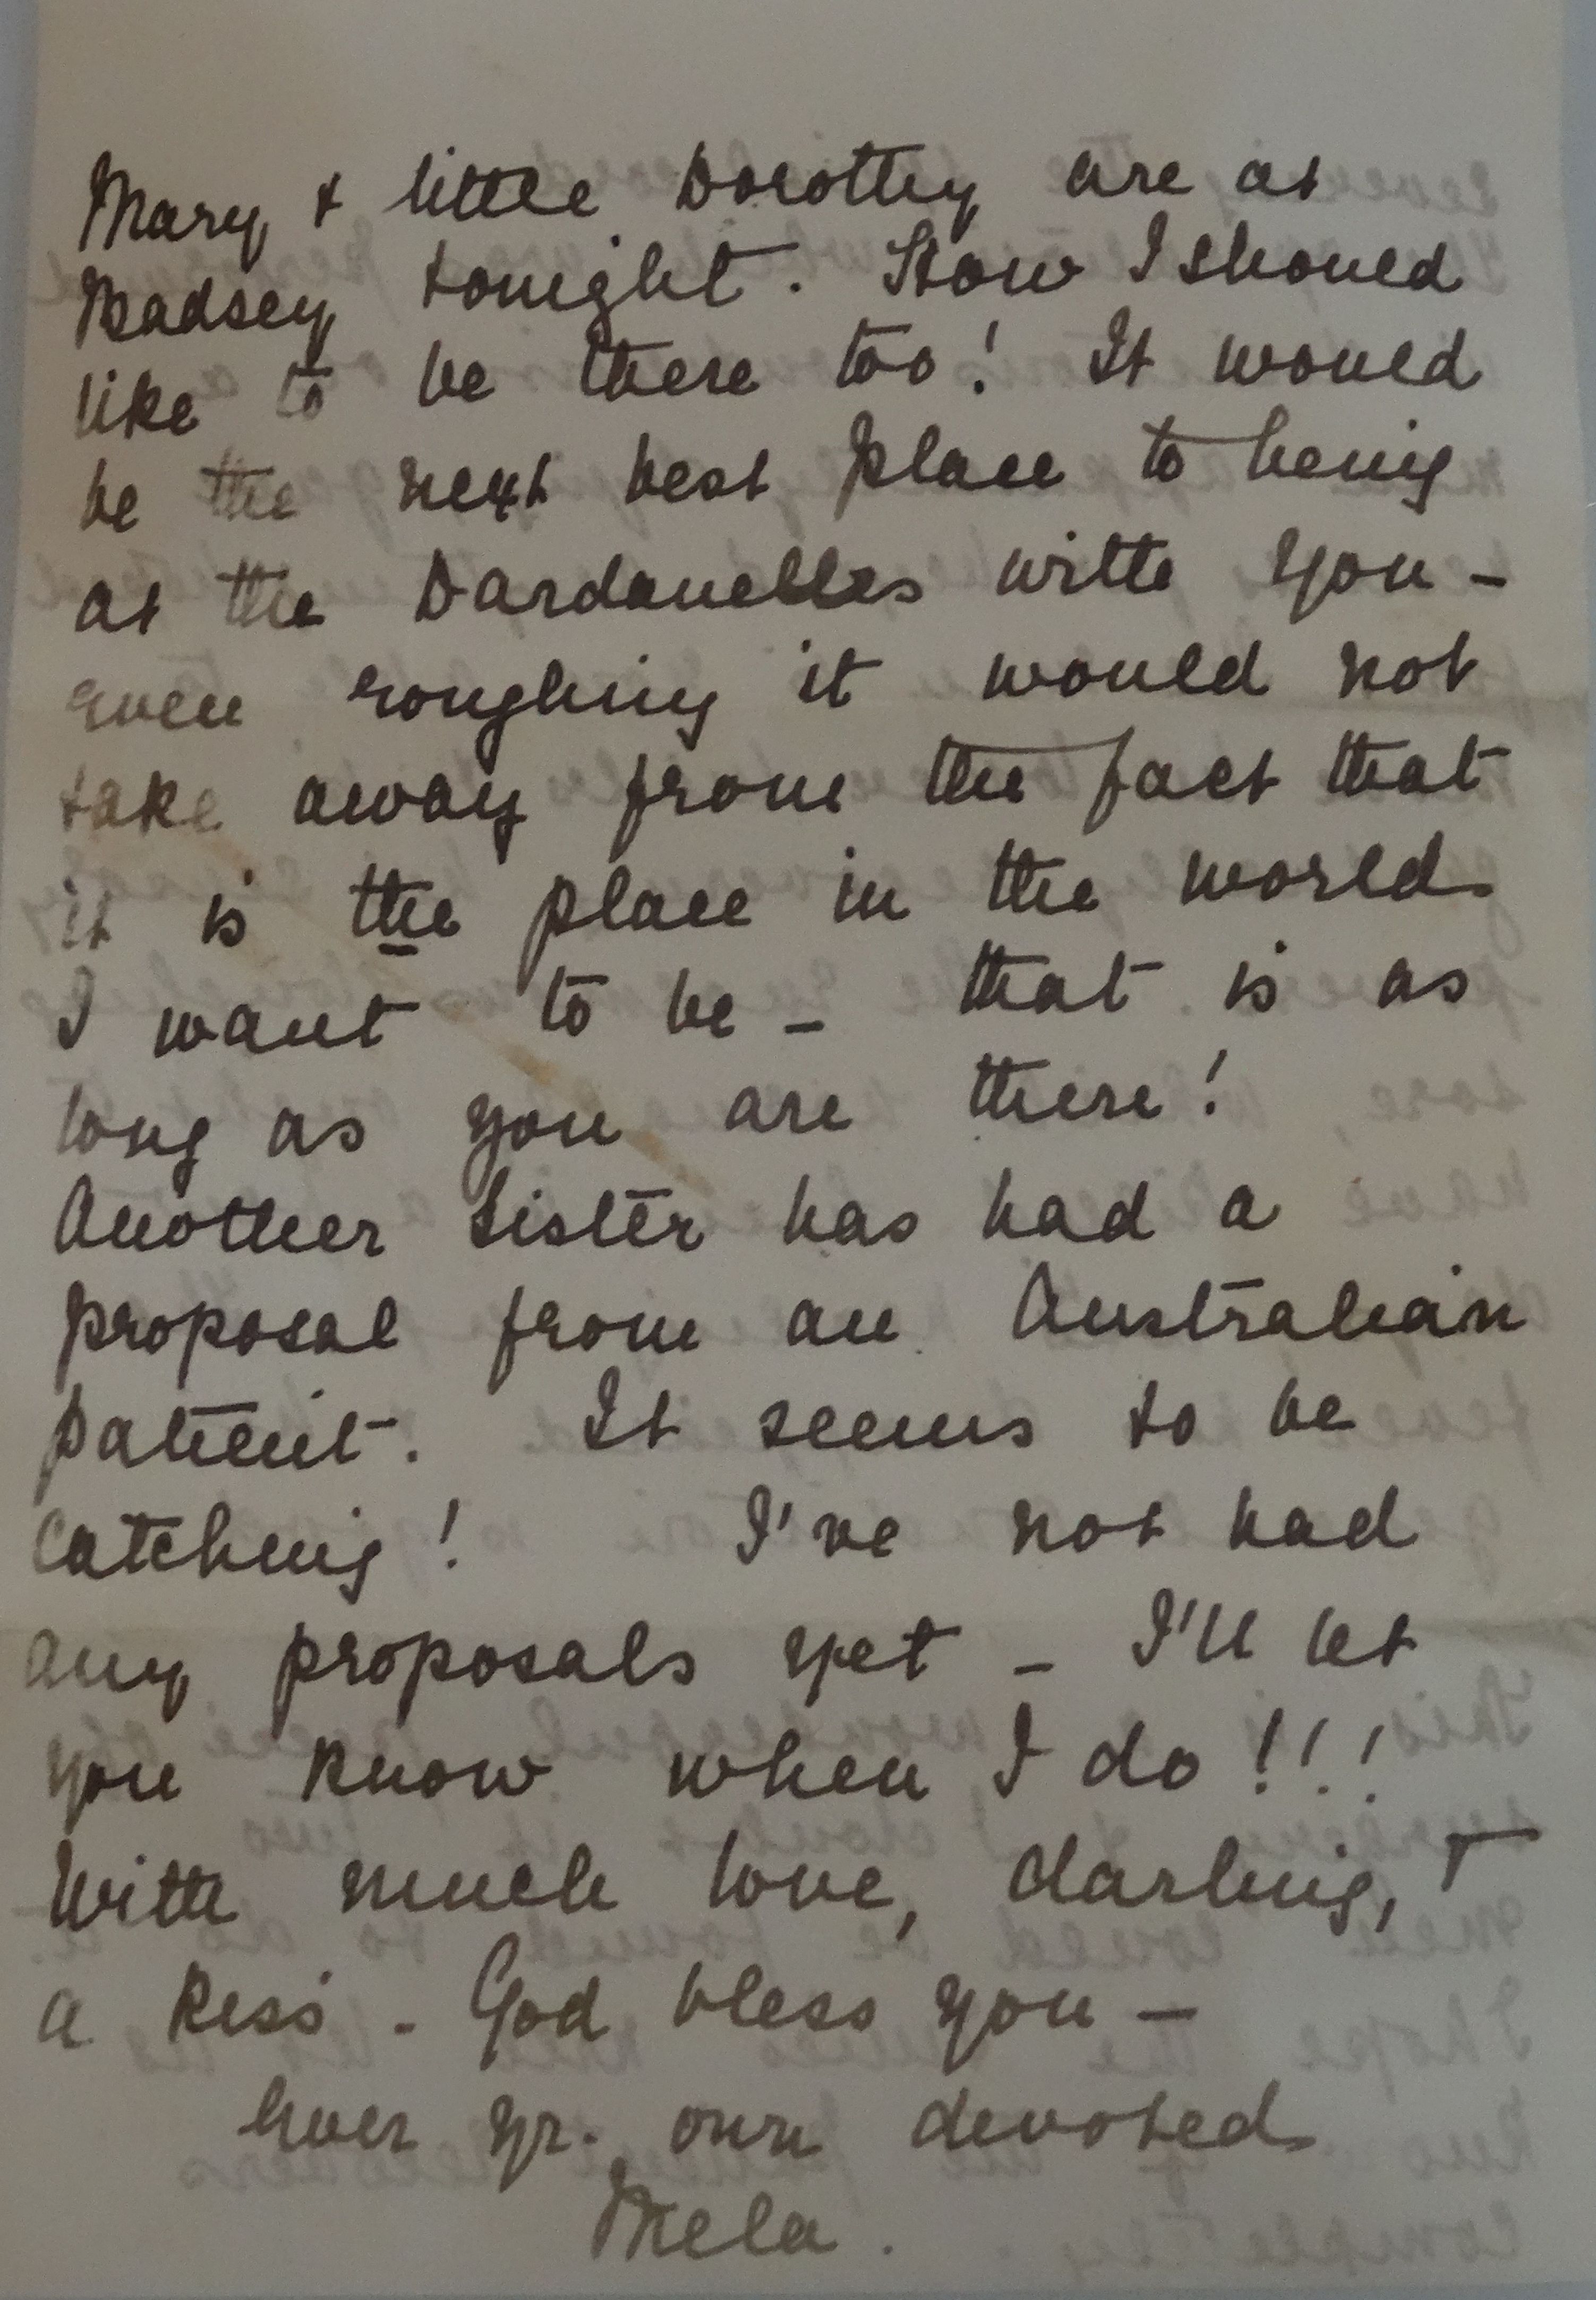 Mary & little Dorothy are at
Badsey tonight. How I should
like to be there too! It would
be the next best place to being
at the Dardanelles with you -
even roughing it would not
take away from the fact that
it is the place in the world
I want to be - that is as
long as you are there!
Another Sister has had a
proposal from an Australian
patient. It seems to be
catching! I've not had
any proposals yet - I'll let
you know when I do!!!
With much love, darling, &
a kiss - God bless you -
Ever yr. own devoted
Mela.